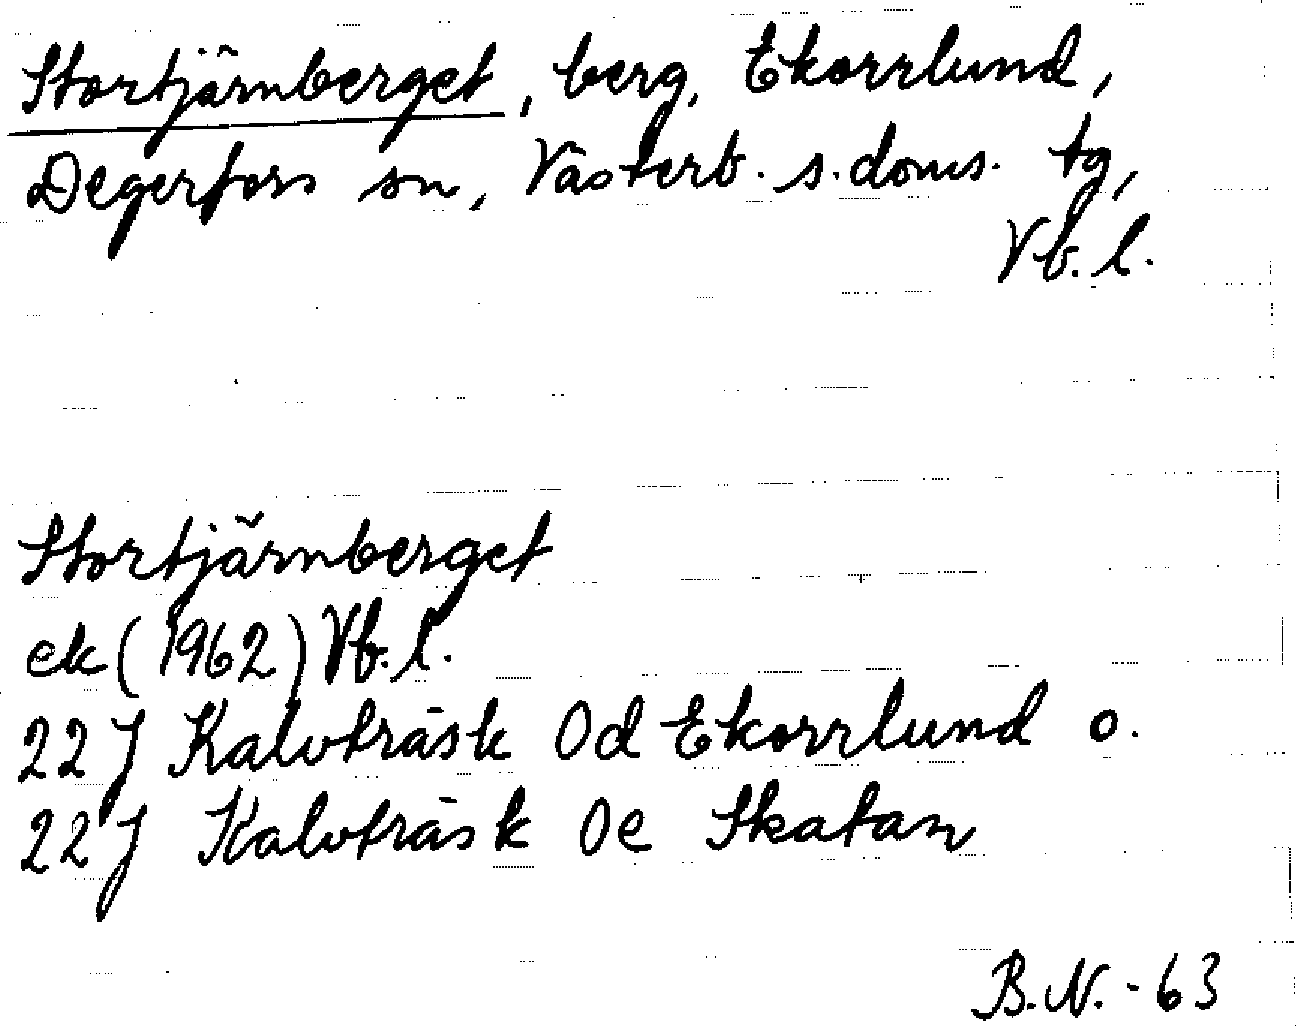 Stortjärnberget, berg, Ekorrlund,
Degerfors sn, Västerb. s. doms. tg,
Vb. l.
Stortjärnberget
ek (1962) Vb. l.
22 J Kalvträsk 0d Ekorrlund o.
22 J Kalvträsk 0e Skatan
B.N. - 63